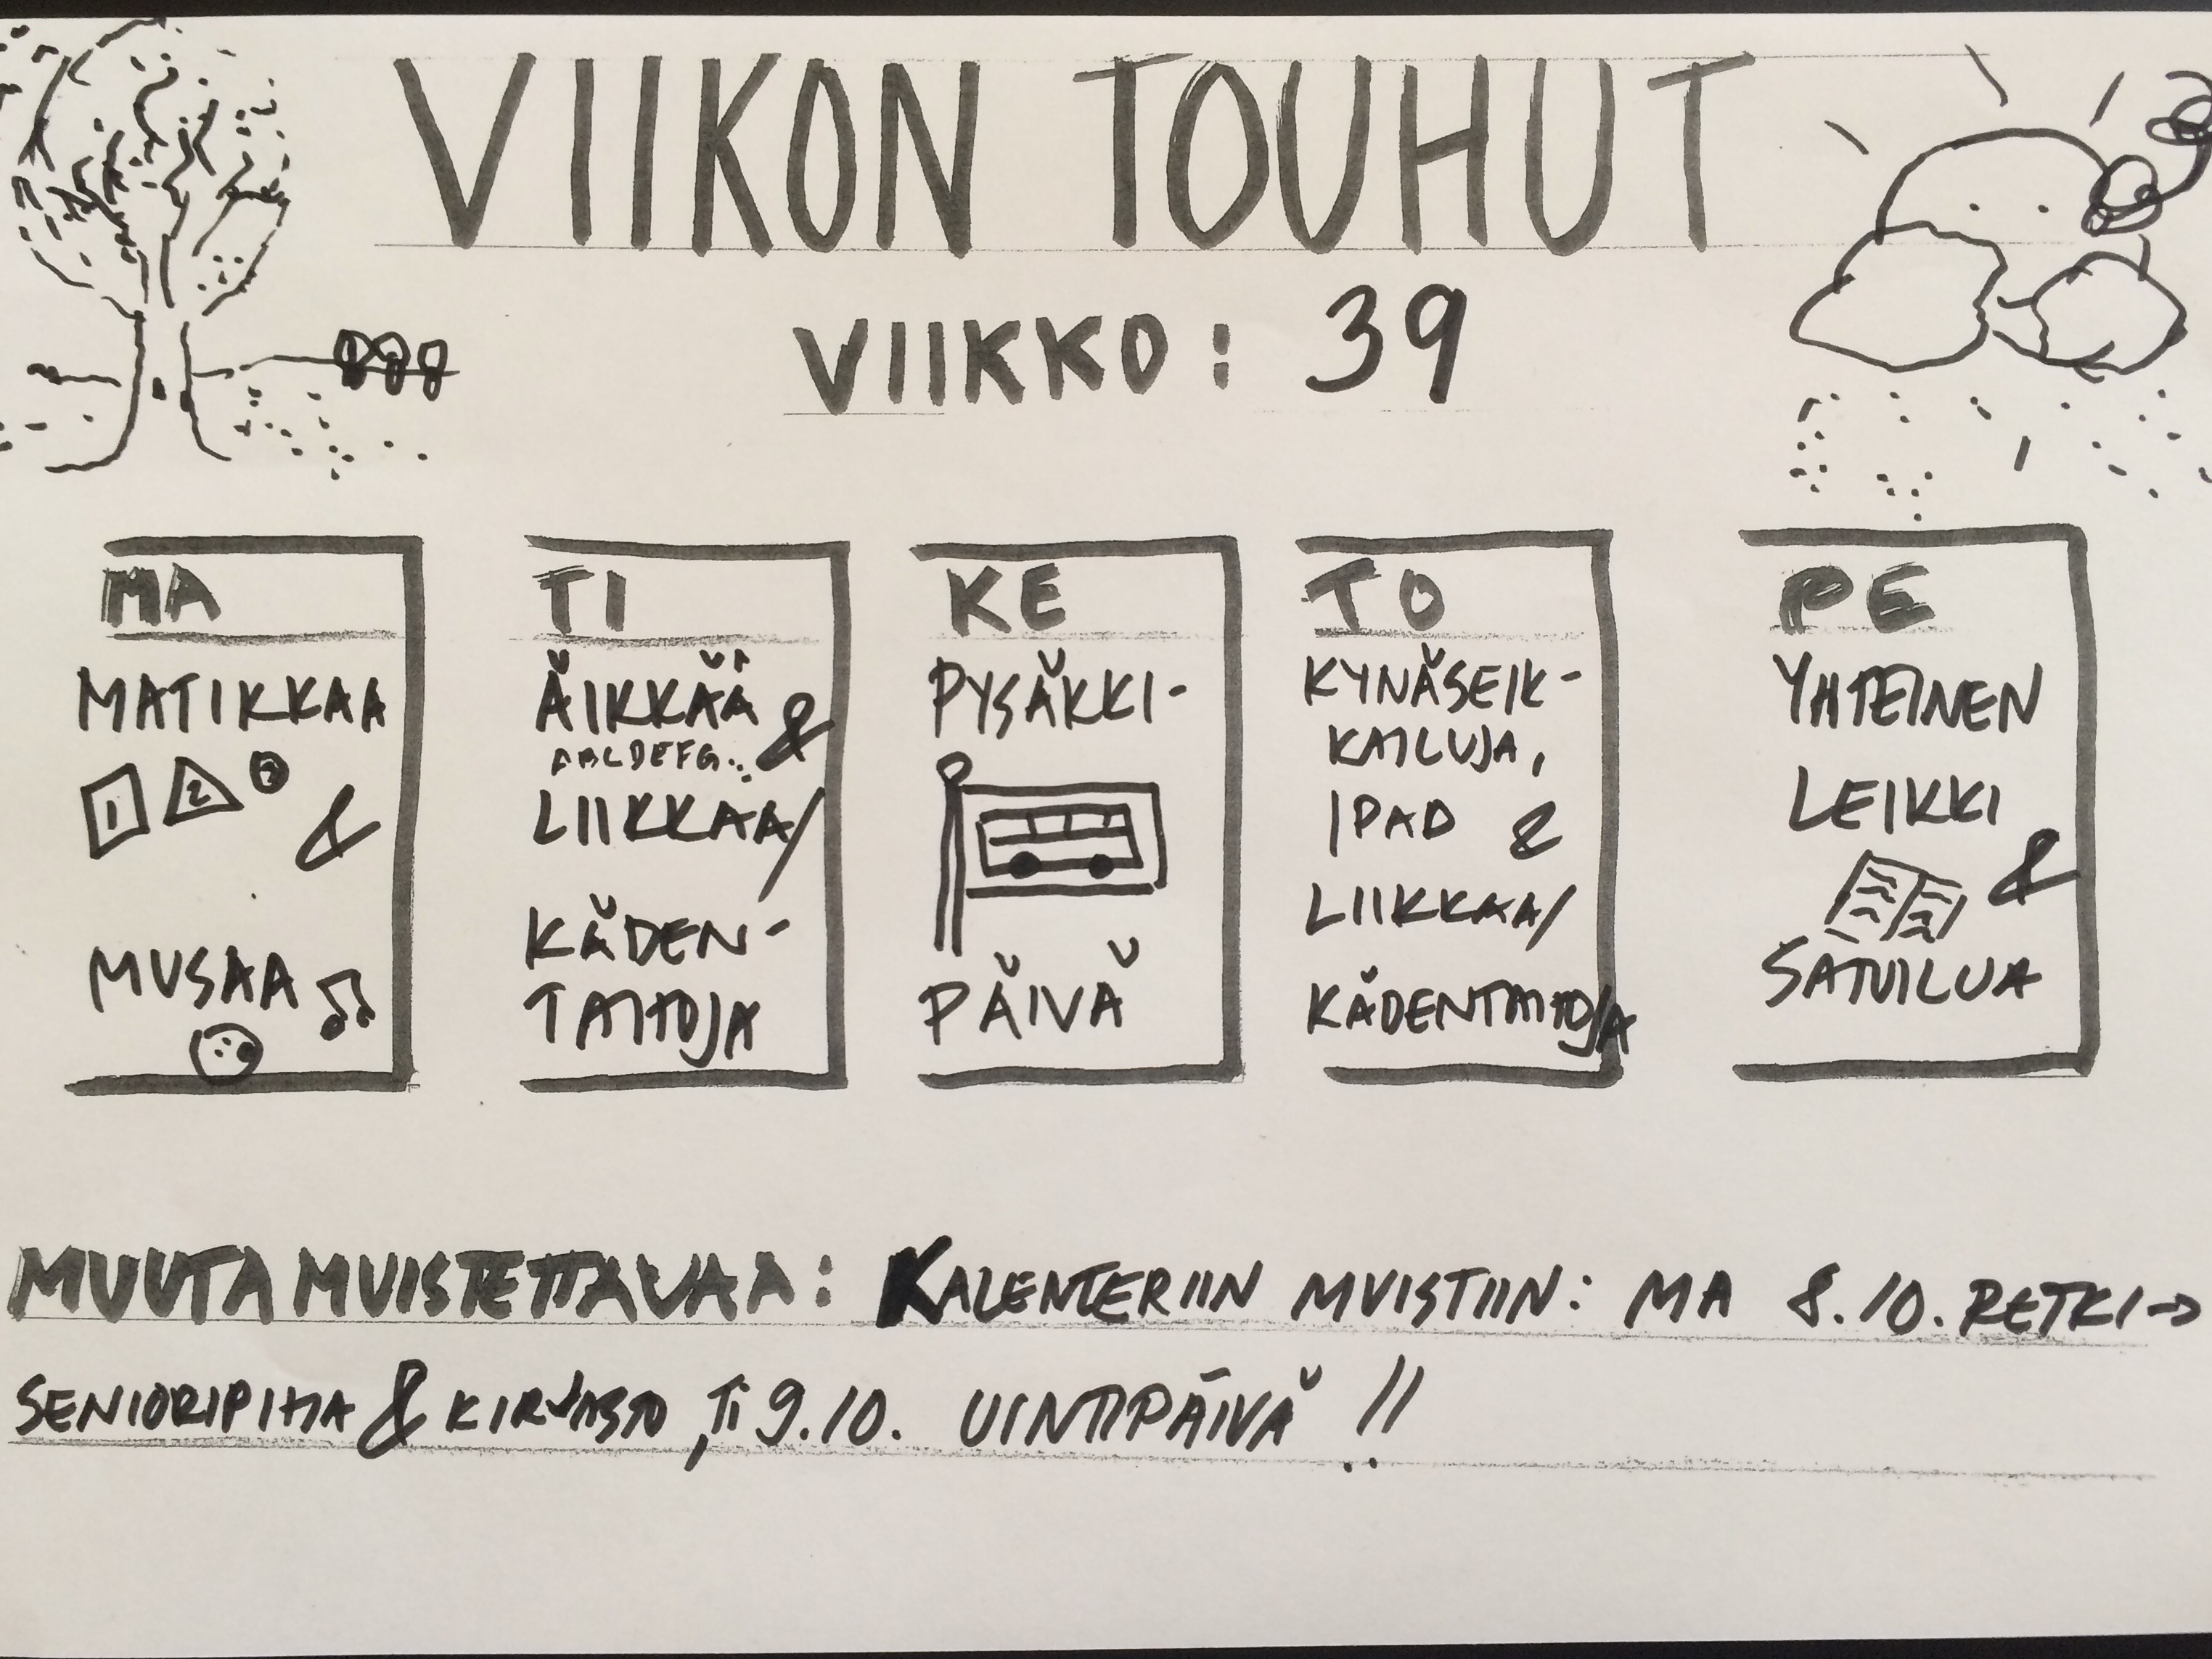 VIIKON TOUHUT
VIIKKO: 39
MA
MATIKKAA
1 2 3
&
MUSAA
TI
ÄIKKÄÄ &
ABCDEFG...
LIIKKAA/
KÄDEN-
TAITOJA
KE
PYSÄKKI-
PÄIVÄ
TO
KYNÄSEIK-
KAILUJA,
IPAD &
LIIKKAA/
KÄDENTAITOJA
PE
YHTEINEN
LEIKKI
&
SATUILUA
MUUTA MUISTETTAVAA: KALENTERIIN MUISTIIN: MA 8.10. RETKI →
SENIORIPIHA & KIRJASTO, TI 9.10. UINTIPÄIVÄ !!